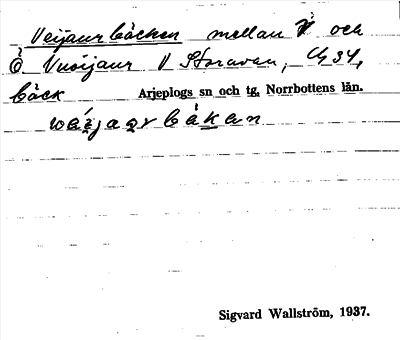 Veijaurbäcken mellan V och
Ö Vuoijaur V Storavan,
bäck Arjeplogs sn och tg, Norrbottens län.
Sigvard Wallström, 1937.